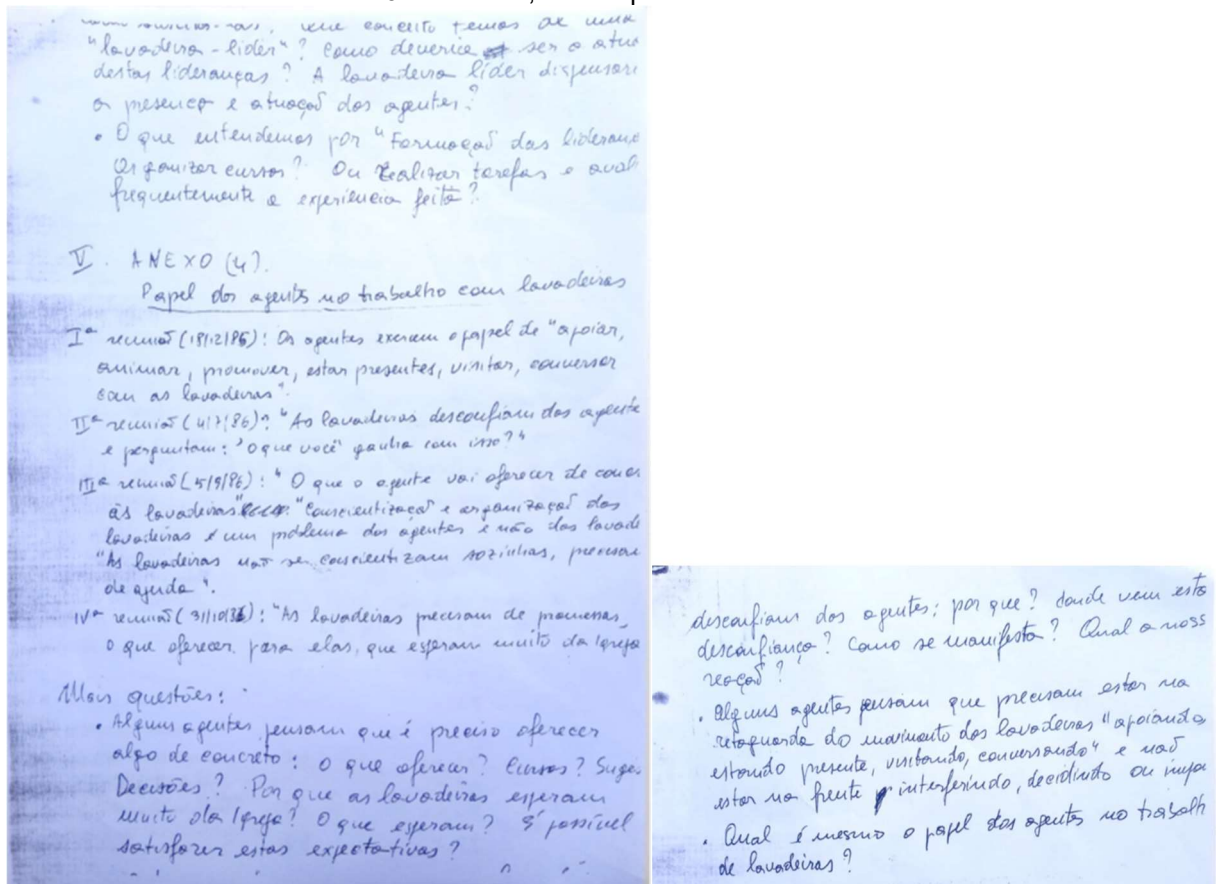 que conceito temos de uma
"lavadeira-líder"? Como deveria ser o atua
destas lideranças? A lavadeira líder dispensari
a presença e atuação dos agentes?
• O que entendemos por "Formação das lideranç
Organizar cursos? Ou realizar tarefas e aval
frequentemente a experiência feita?
V. ANEXO (4).
Papel dos agentes no trabalho com lavadeiras
Iª reunião (18/12/85): Os agentes exercem o papel de "apoiar,
animar, promover, estar presentes, visitar, conversar
com as lavadeiras".
IIª reunião (4/7/86): "As lavadeiras desconfiam dos agente
e perguntam: 'O que você ganha com isso?"
IIIª reunião (5/9/86): "O que o agente vai oferecer de concr
às lavadeiras" "Conscientização e organização das
lavadeiras é um problema dos agentes e não das lavade
"As lavadeiras não se conscientizam sozinhas, precisam
de ajuda".
IVª reunião (31/10/86): "As lavadeiras precisam de promessas,
o que oferecer para elas, que esperam muito da Igreja
Mais questões:
• Alguns agentes pensam que é preciso oferecer
algo de concreto: o que oferecer? Cursos? Suges
Decisões? Por que as lavadeiras esperam
muito da Igreja? O que esperam? É possível
satisfazer estas expectativas?
desconfiam dos agentes: por que? donde vem esta
desconfiança? Como se manifesta? Qual a noss
reação?
• Alguns agentes pensam que precisam estar na
retaguarda do movimento das lavadeiras "apoiando
estando presente, visitando, conversando" e não
estar na frente interferindo, decidindo ou impo
• Qual é mesmo o papel dos agentes no trabalh
de lavadeiras?